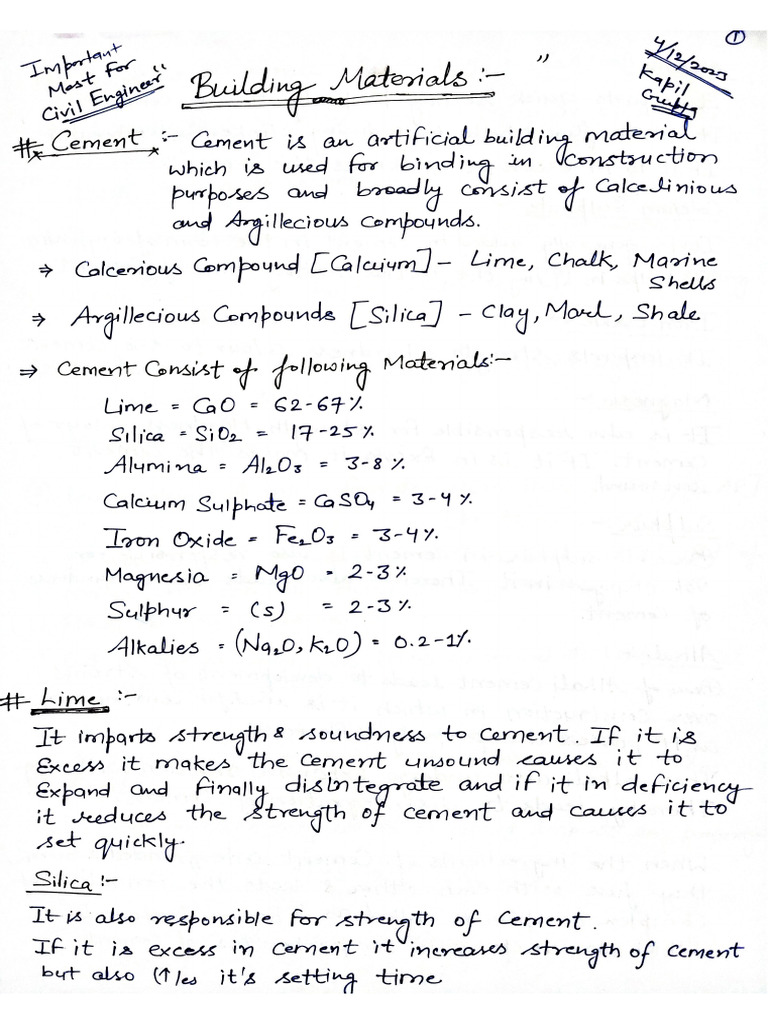 ①
Important
Most for
Civil Engineer"
Building Materials :- "
4/12/2023
Kapil
Gupta
# Cement :- Cement is an artificial building material
which is used for binding in construction
purposes and broadly consist of Calcelinious
and Argillecious compounds.
⇒ Calcerious Compound [Calcium] - Lime, Chalk, Marine
Shells
⇒ Argillecious Compounds [Silica] - Clay, Marl, Shale
⇒ Cement Consist of following Materials:-
Lime = CaO = 62-67%
Silica = SiO2 = 17-25%
Alumina = Al2O3 = 3-8%
Calcium Sulphate = CaSO4 = 3-4%
Iron Oxide = Fe2O3 = 3-4%
Magnesia = MgO = 2-3%
Sulphur = (s) = 2-3%
Alkalies = (Na2O, K2O) = 0.2-1%
# Lime :-
It imparts strength & soundness to cement. If it is
Excess it makes the cement unsound causes it to
Expand and finally disintegrate and if it in deficiency
it reduces the strength of cement and causes it to
set quickly.
Silica :-
It is also responsible for strength of cement.
If it is excess in cement it increases strength of cement
but also (↑/es it's setting time